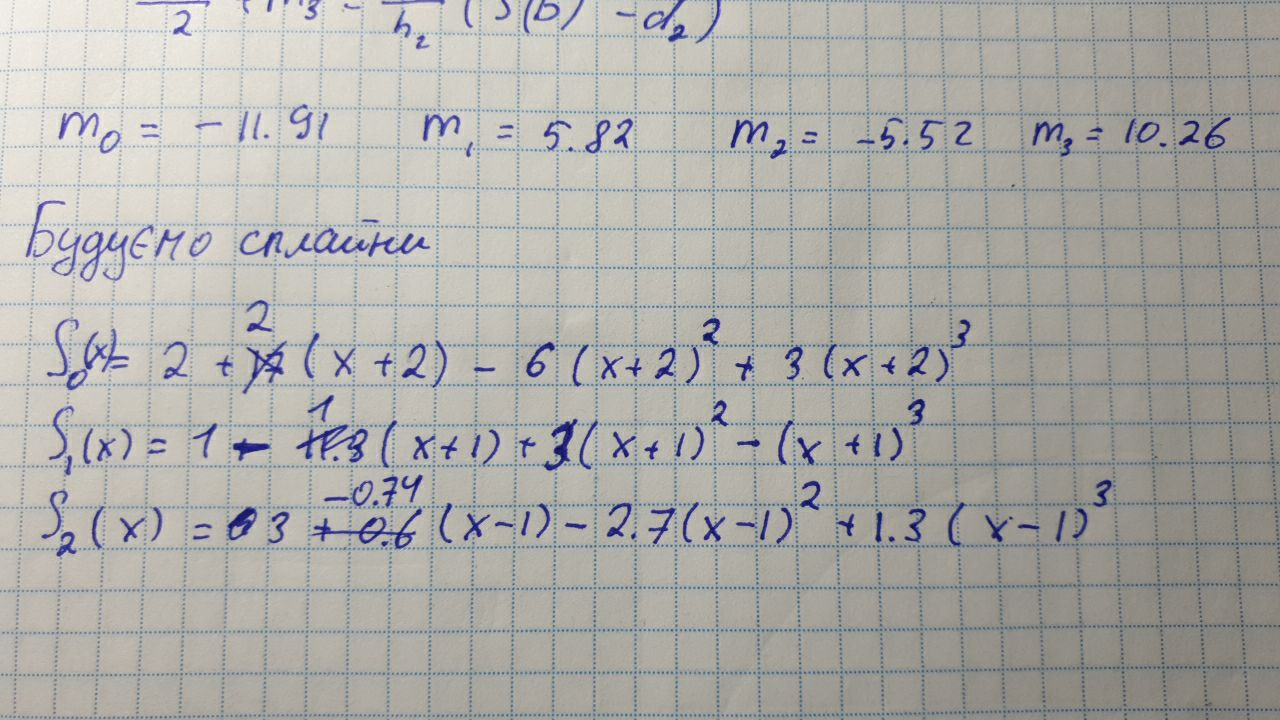 2 + m₃ = h₂ ( S(b) - d₂ )
m₀ = - 11.91 m₁ = 5.82 m₂ = -5.52 m₃ = 10.26
Будуємо сплайни
S₀(x) = 2 + 2 (x + 2) - 6 (x + 2)² + 3 (x + 2)³
S₁(x) = 1 - 1 (x + 1) + 3 (x + 1)² - (x + 1)³
S₂(x) = 3 -0.74 (x - 1) - 2.7 (x - 1)² + 1.3 (x - 1)³